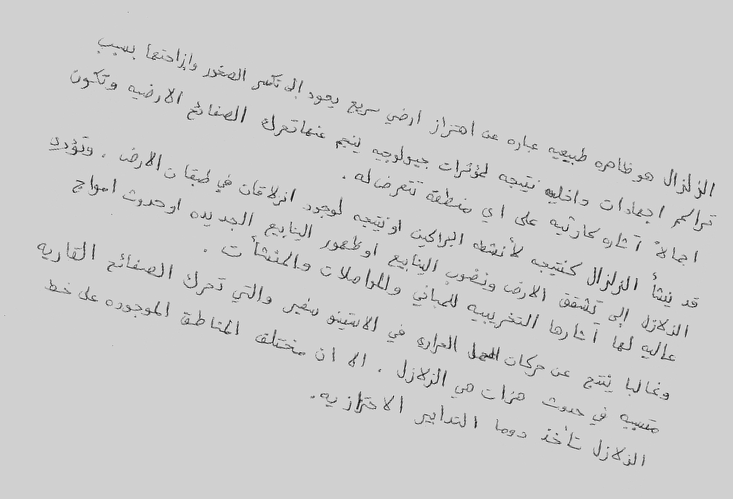 الزلزال هو ظاهره طبيعيه عباره عن اهتزاز ارضي سريع يعود إلى تكسر الصخور وإزاحتها بسبب
تراكم اجهادات داخليه نتيجه لمؤثرات جيولوجيه ينجم عنها تحرك الصفائح الارضيه وتكون
اجمالاً آثاره كارثيه على اي منطقة تتعرض له .
قد ينشأ الزلزال كنتيجه لأنشطه البراكين او نتيجه لوجود انزلاقات في طبقات الارض . وتؤدي
الزلازل إلى تشقق الارض ونضوب الينابيع او ظهور الينابيع الجديده او حدوث امواج
عاليه لها آثارها التخريبيه للمباني والمواصلات والمنشأت .
وغالبا ينتج عن حركات الحمل الحراري في الاستينو سفير والتي تحرك الصفائح القاريه
متسببه في حدوث هزات هي الزلازل . الا ان مختلف المناطق الموجوده على خط
الزلازل تأخذ دوما التدابير الاحترازيه .